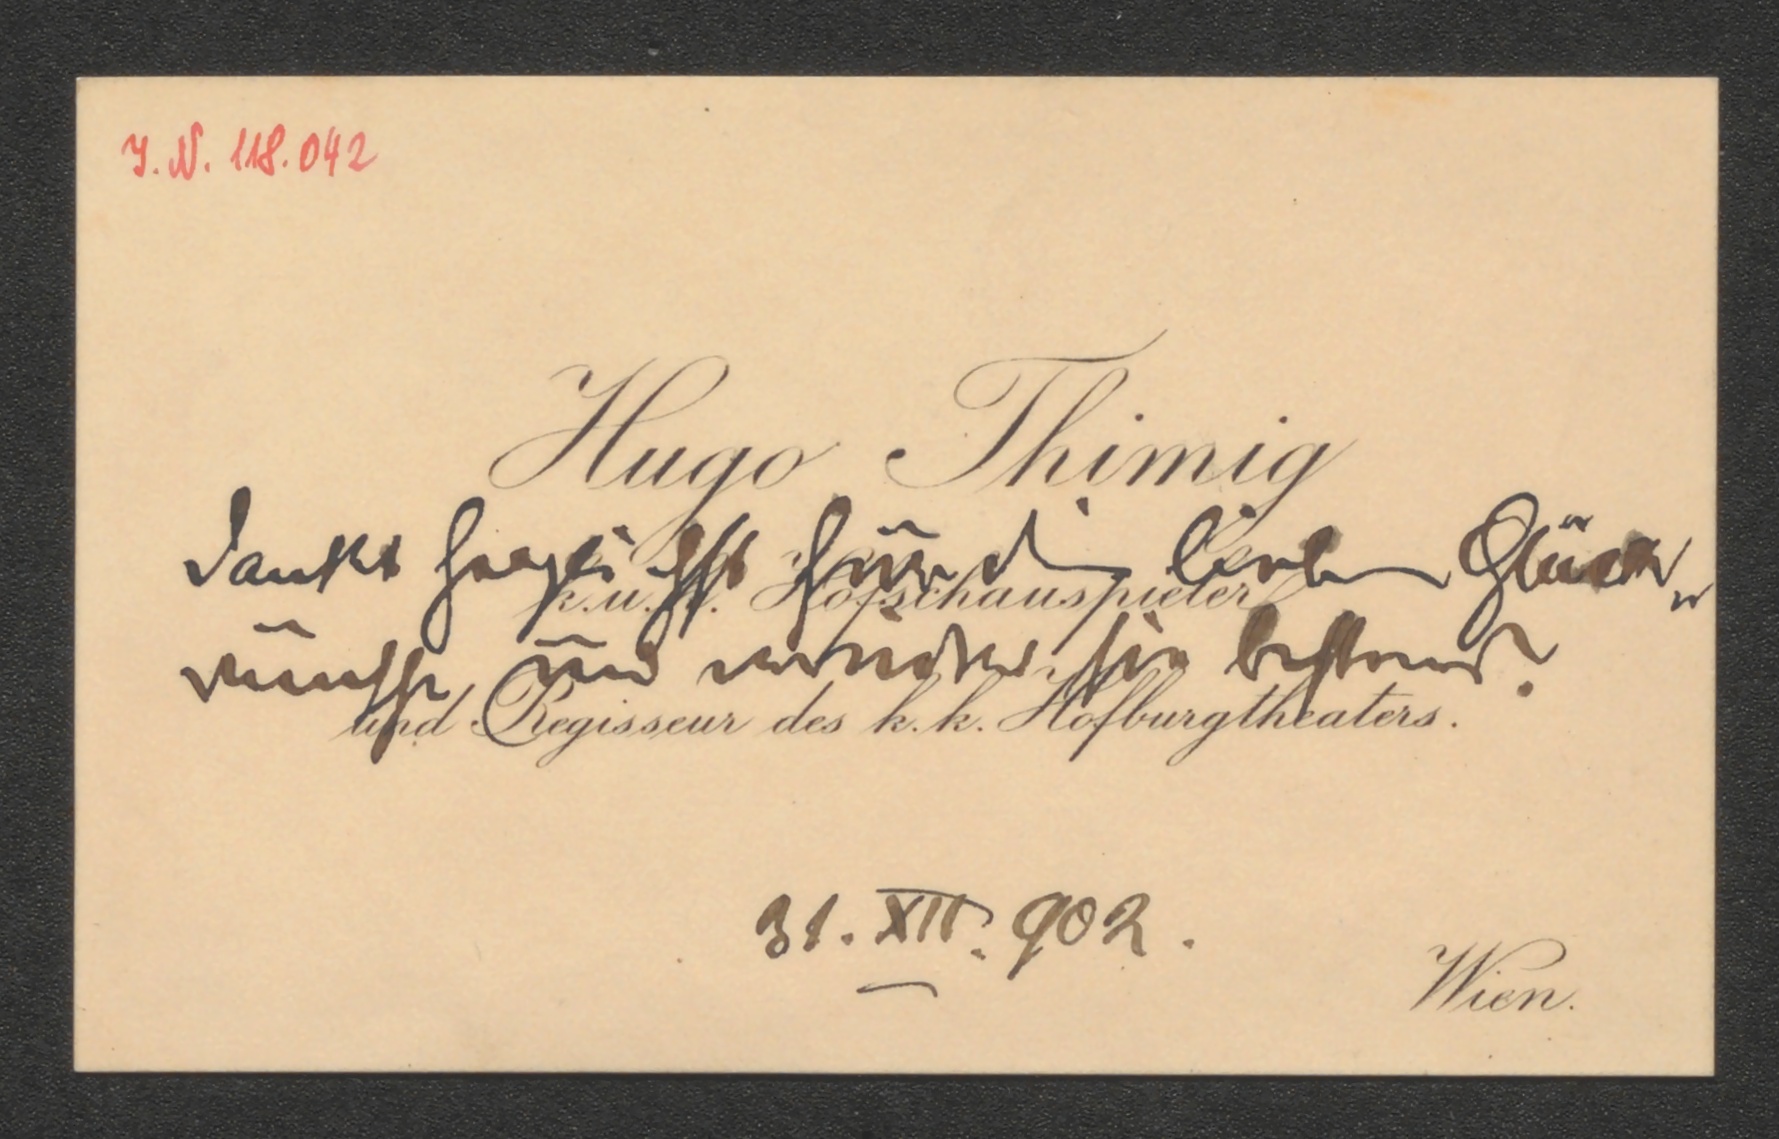 J. N. 118.042
Hugo Thimig
dankt herzlichst für die lieben Glück-
k. u. k. Hofschauspieler
wünsche und erwidert sie bestens.
und Regisseur des k. k. Hofburgtheaters.
31. XII. 902.
Wien.